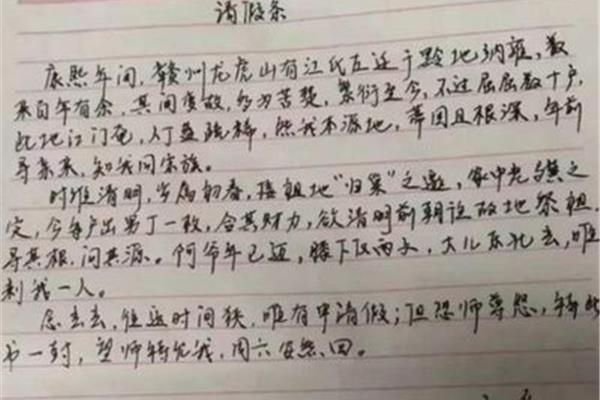 请假条
康熙年间，赣州龙虎山有江氏左迁于黔地纳雍，数
来百年有余，其间变故，多为苦楚，繁衍至今，不过屈屈数十户，
此地江门在，人丁益疏稀，然我本源地，蒂固且根深，年前
寻亲来，知我同宗族。
时维清明，岁属初春，接祖地“归宗”之邀，家中老
定，今每户出男丁一枚，合其财力，欲清明前朝谊故地祭祖，
寻其根，问其源。何爷年已迈，膝下仅两人，大儿东北去，唯
剩我一人。
念去去，往返时间狭，唯有申请假；但恐师尊怨，特此
书一封，望师特允我，周六安然回。